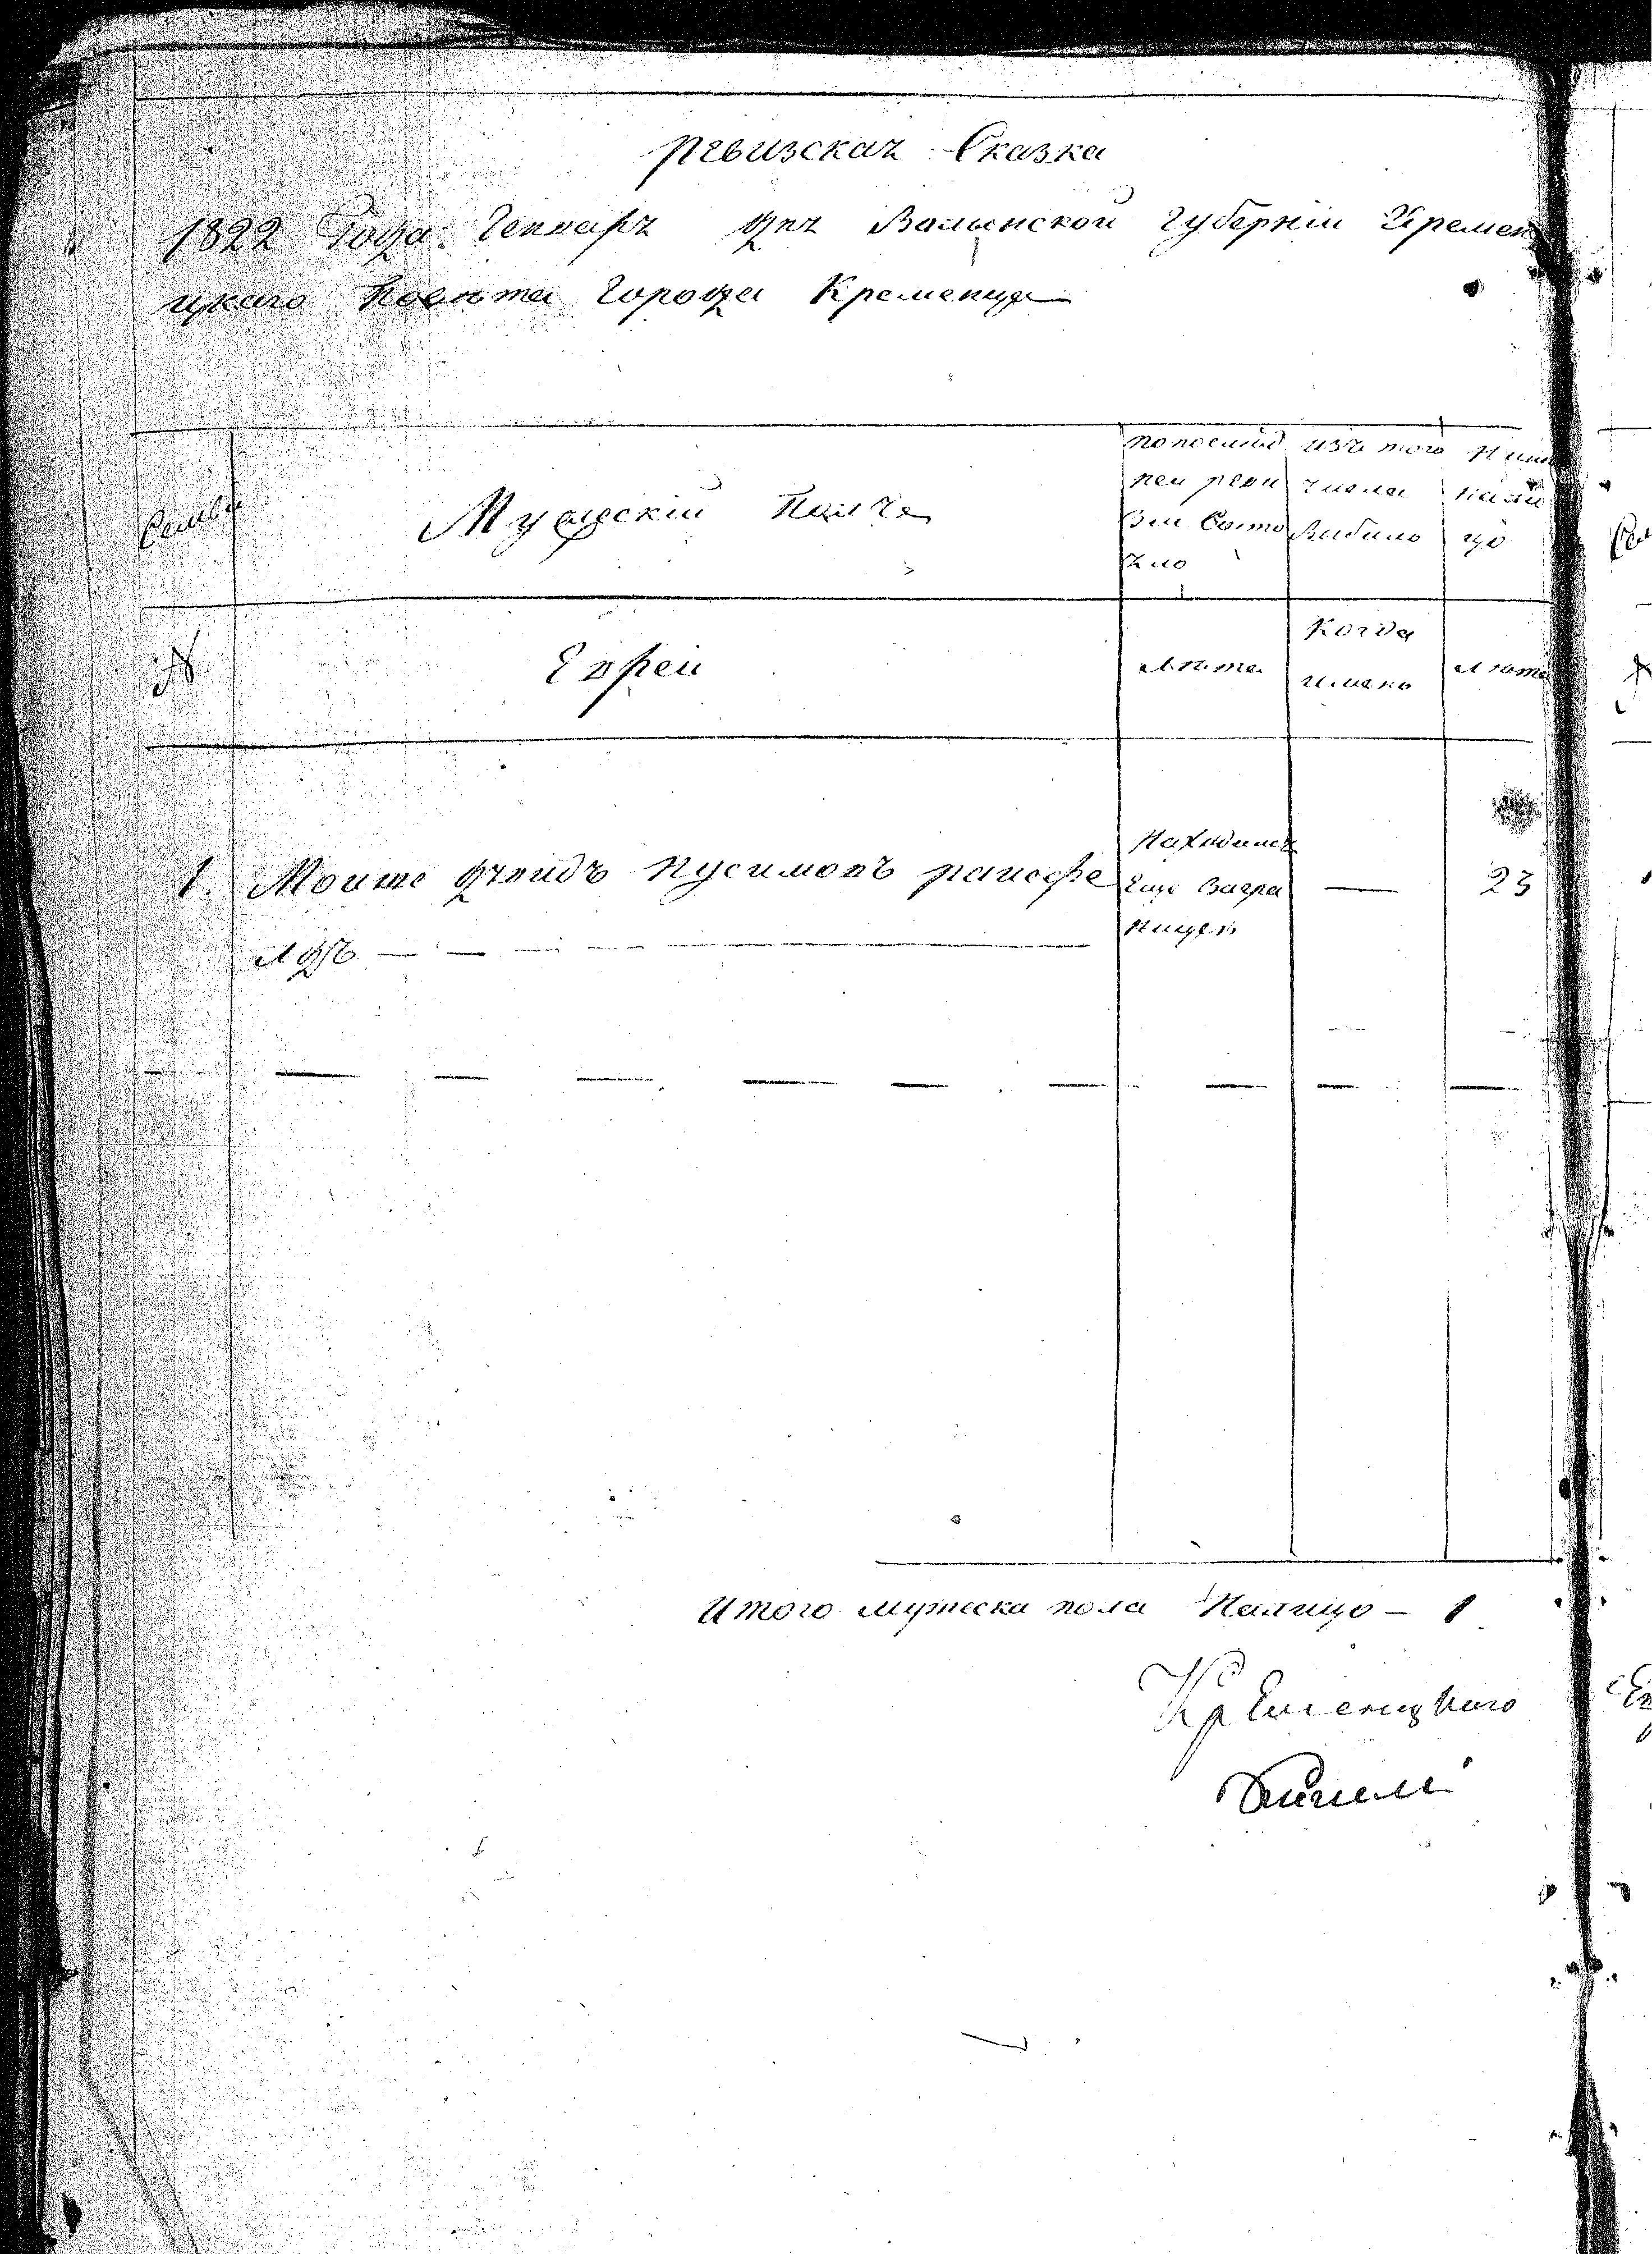 ревизская Сказка
1822 Года Генваря дня Волынской Губернiи Кремен
цкаго Повѣта Города Кременца
Семьи
Мужескiй Полъ
по послѣд
ней реви
зiи Состо
яло
изъ того
числа
выбыло
Нынѣ
нали
цо
№
Евреи
лѣта
Когда
имяно
лѣта
1. Моишо Дувидъ Нусимовъ
Находился
Еще Загра
ницею
—
23
Итого мужеска пола Налицо – 1
Кременецкаго